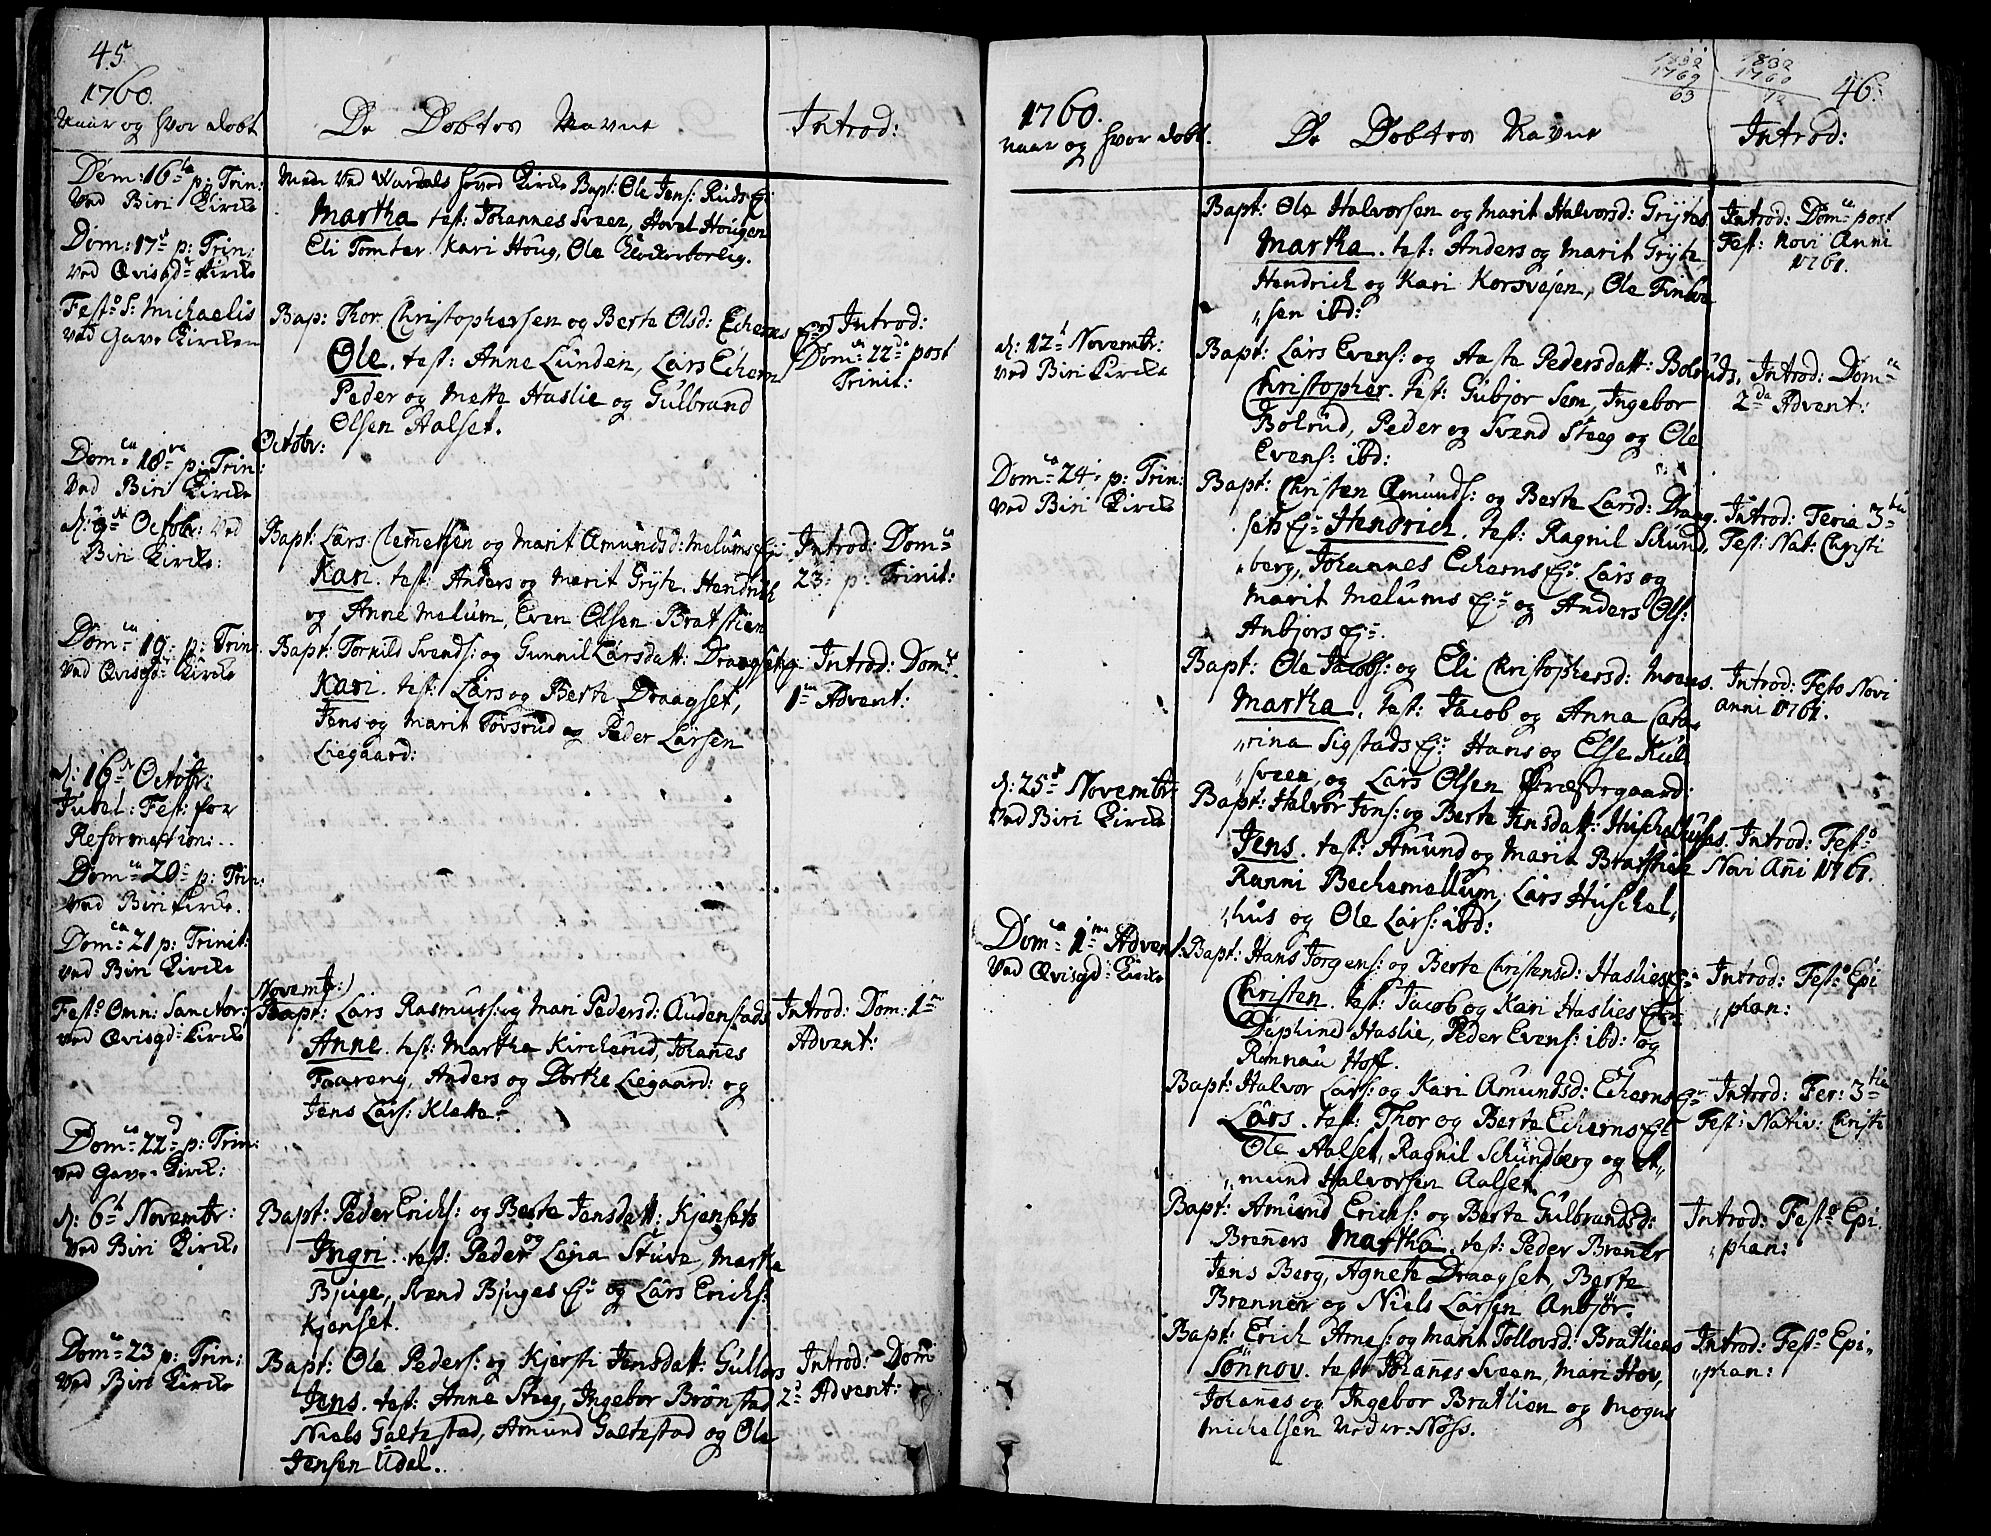 45.
1760.
Naar og hvor døbt
De Døbtes Navne
Introd:
Dom: 16 p: Trin:
Ved Biri Kirke
Men Ved Wardals hoved Kirke Bapt: Ole Jens: Ruds Ej:
Martha test: Johannes Sveen, Hovel Hougen
Eli Tomter Kari Houg, Ole
Dom: 17 p: Trin:
ved Qvisgd: Kirke
Fest: S: Michaelis
ved Gave Kirken
Bap: Thor Christophersen og Berte Olsd: Echerns Ej:
Ole. test: Anne Lunden, Lars Echern
Peder og Mette Haslie og Gulbrand
Olsen Aalset.
Introd:
Dom: 22 post
Trinit:
Octobr:
Dom: 18 p: Trin:
Ved Biri Kirke
d: 9 Octobr: Ved
Biri Kirke:
Bapt: Lars Clemetsen og Marit Amundsd: Melums Ej:
Kari. test: Anders og Marit Gryte. Hendrich
og Anne Melum, Even Olsen Bratstien
Introd: Dom:
23: p: Trinit:
Dom: 19: p: Trin:
Ved Qvisgd: Kirke
Bapt: Tornild Svends: og Gunnil Larsdatt: Draagset
Kari. test: Lars og Berte Draagset,
Jens og Marit Tovsrud og Peder Larsen
Liegaard:
Introd: Dom:
1 Advent:
d: 16 Octobr:
Jubel: Fest: for
Reformation:
Dom: 20 p: Trin:
ved Biri Kirke.
Dom: 21 p: Trinit:
ved Biri Kirke
Novembr:
Fest: Omn: Sanctor:
ved Qvisgd: Kirke
Bapt: Lars Rasmuss: og Mari Pedersd: Audenstads
Anne. test: Martha Kircherud, Johanes
Faareng, Anders og Dorthe Liegaard: og
Jens Lars: Klette
Introd: Dom: 1
Advent:
Dom: 22 p: Trin:
Ved Gave Kirke:
d: 6 Novembr:
Ved Biri Kirke
Bapt: Peder Erichs: og Berte Jensdatt: Kjensets
Ingri. test: Peder og Leja Stuve, Marta
Bjuge, Svend Bjuges Ej: og Lars Erichs:
Kjenset.
Dom: 23 p: Trin:
Ved Biri Kirke
Bapt: Ole Peders: og Kjersti Jensdatt: Gullers
Jens. test: Anne Steeg, Ingebor Brønstad
Niels Galtestad, Amund Galtestad og Ole
Jensen Udal.
Introd: Dom
2 Advent:
1760.
Naar og hvor døbt.
De Døbtes Navne
Introd:
1832
1769
63
1832
1760
72
46:
Bapt: Ole Halvorsen og Marit Halvorsd: Grytes
Martha. test: Anders og Marit Gryte
Hendrich og Kari Korsvejen, Ole
sen ibd:
Introd: Dom: post
Fest: Novi Anni
1761.
d: 12 Novembr:
Ved Biri Kirke
Bapt: Lars Evens: og Aaste Pedersdatt: Bolruds,
Christopher. test: Gubjor Sem, Ingebor
Bolrud, Peder og Svend Steeg og Ole
Evens: ibd:
Introd: Dom:
2 Advent:
Dom: 24 p: Trin:
Ved Biri Kirke
Bapt: Christen Amunds: og Berte Larsd: Draag,,
sets Ej: Hendrich. test: Ragnil Schund,,
berg, Johannes Echerns Ej: Lars og
Marit Melums Ej: og Anders Ols:
Anbjors Ej:
Introd: Feria 3
Fest: Nat: Christi
Bapt: Ole Jacobs: og Eli Christophersd: Moens.
Martha. test: Jacob og Anna Catha
rina Sigstads Ej: Hans og Else Kul
sveen og Lars Olsen Præstegaard:
Introd: Festo Novi
anni 1761.
d: 25 Novembr:
Ved Biri Kirke
Bapt: Halvor Jons: og Berte Jensdatt: Huschelhuses.
Jens. test: Amund og Marit Bratstien
Ranni Bechemellum, Lars Huschel,,
hus og Ole Lars: ibd:
Introd: Fest:
Novi Ani 1761.
Dom: 1 Advent:
Ved Qvisgd: Kirke
Bapt: Hans Jorgens: og Berte Christensd: Haslies Ej:
Christen. test: Jacob og Kari Haslies Ej:
Haslie, Peder Evens: ibd: og
Rønnau Hoff.
Introd: Fest: Epi
phan:
Bapt: Halvor Lars: og Kari Amundsd: Echerns Ej:
Lars. test: Thor og Berte Echerns Ej:
Ole Aalset, Ragnil Schundberg og A,,
mund Halvorsen Aalset.
Introd: Fer: 3
Fest: Nativ: Christi
Bapt: Amund Erichs: og Berte Gulbrandsd:
Breners Martha. test: Peder Brener
Jens Berg, Agnete Draagset, Berte
Brenner og Niels Larsen Anbjør.
Introd: Fest: Epi
phan:
Bapt: Erich Arnes: og Marit Tollovsd: Bratliens
Sønnov. test: Johanes Sveen, Mari Hov,
Johanes og Ingebor Bratlien og Mogns
Michelsen Nedre-Nøss.
Introd: Fest: Epi,,
phan: